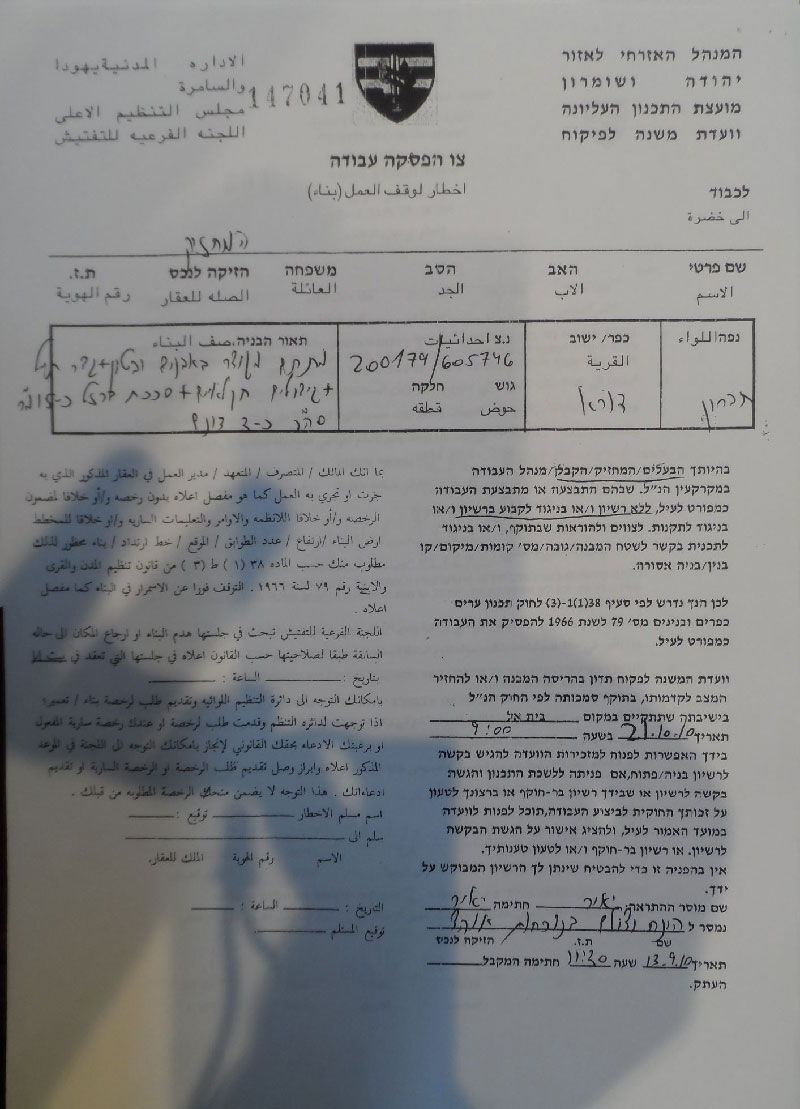 המנהל האזרחי לאזור
יהודה ושומרון
מועצת התכנון העליונה
וועדת משנה לפיקוח
الاداره المدنية يهودا
والسامرة
مجلس التنظيم الاعلى
اللجنه الفرعيه للتفتيش
147041
צו הפסקה עבודה
اخطار لوقف العمل (بناء)
לכבוד
الى حضرة
המחזיק
שם פרטי האב הסב משפחה הזיקה לנכס ת.ז.
الاسم الاب الجد العائلة الصله للعقار رقم الهوية
נפה اللواء כפר/ישוב נ.צ احداثيات תאור הבניה, صف البناء
القرية
חברון דורא 200174/605746
גוש חלקה
حوض قطعه
מתקם מגודר באבנים
+ סככת ברזל כ-
כ-2 דונם
בהיותך הבעלים/המחזיק/הקבלן/מנהל העבודה
במקרקעין הנ"ל. שבהם התבצעה או מתבצעת העבודה
כמפורט לעיל, ללא רשיון ו/או בניגוד לקבוע ברשיון ו/או
בניגוד לתקנות. לצווים ולהוראות שבתוקף, ו/או בניגוד
לתכנית בקשר לשטח המבנה/גובה/מס' קומות/מיקום/קו
בנין/בניה אסורה.
לכן הנך נדרש לפי סעיף 38(1)-(3) לחוק תכנון ערים
כפרים ובנינים מס' 79 לשנת 1966 להפסיק את העבודה
כמפורט לעיל.
וועדת המשנה לפקוח תדון בהריסה המבנה ו/או להחזיר
המצב לקדמותו, בתוקף סמכותה לפי החיק הנ"ל
בישיבתה שתתקיים במקום בית אל
תאריך 21.10.10 בשעה 9:00
בידך האפשרות לפנות למזכירות הוועדה להגיש בקשה
לרשיון בניה/פתוח, אם פניתה ללשכת התכנון והגשת
בקשה לרשיון או שבידך רשיון בר-חוקף או ברצונך לטעון
על זכותך החוקית לביצוע העבודה, תוכל לפנות לוועדה
במועד האמור לעיל, ולהציג אישור על הגשת הבקשה
לרשיון. או רשיון בר-חוקף ו/או לטעון טענותיך.
אין בהפניה זו כדי להבטיח שינתן לך הרשיון המבוקש על
ידך.
שם מוסר ההתראה: יאיר חתימה יאיר
נמסר ל הונח וצולם בנוכחות
שם ת.ז. הזיקה לנכס
תאריך 13.9.10 שעה חתימה המקבל
העתק.
بما انك المالك / المتصرف / المتعهد / مدير العمل في العقار المذكور الذي به
جرت او تجري به العمل كما هو مفصل اعلاه بدون رخصه و/أو خلافا لمضمون
الرخصه و/أو خلافا للانظمه والاوامر والتعليمات الساريه و/او خلافا للمخطط
ارض البناء /ارتفاع / عدد الطوابق / الموقع / خط ارتداد / بناء محظور لذلك
مطلوب منك حسب الماده ٣٨ (١) ط (٣) من قانون تنظيم المدن والقرى
والابنية رقم ٧٩ لسنة ١٩٦٦ . التوقف فورا عن الاستمرار في البناء كما مفصل
اعلاه .
اللجنة الفرعية للتفتيش تبحث في جلستها هدم البناء او ارجاع المكان الى حاله
السابقة طبقا لصلاحيتها حسب القانون اعلاه في جلستها التي تعقد في
بتاريخ : الساعة :
بامكانك التوجه الى دائرة التنظيم اللوائيه وتقديم طلب لرخصة بناء / تعمير؛
اذا توجهت لدائره التنظم وقدمت طلب لرخصة او عندك رخصة سارية المفعول
او برغبتك الادعاء بحقك القانوني لإنجاز بامكانك التوجه الى اللجنة في الموعد
المذكور اعلاه وابراز وصل تقديم طلب الرخصة او الرخصة السارية او تقديم
ادعاءاتك . هذا التوجه لا يضمن منحك الرخصة المطلوبه من قبلك .
اسم مسلم الاخطار توقيع :
سلم الى
الاسم رقم الهوية المالك للعقار.
التاريخ : الساعة :
توقيع المستلم